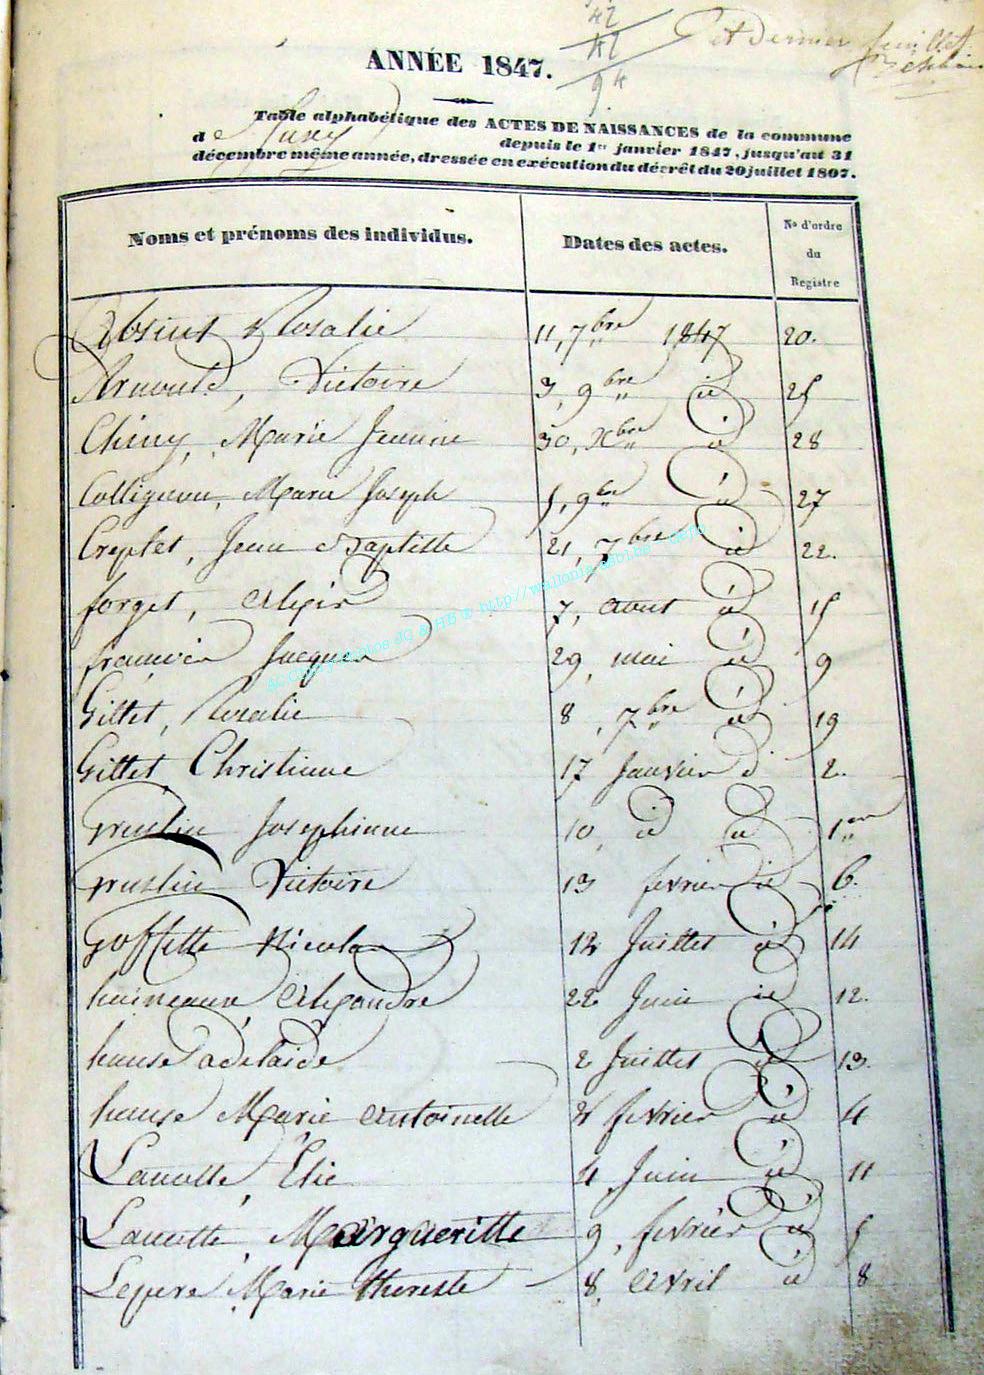 42
42
94
6 et dernier feuillet
ANNÉE 1847.
Table alphabétique des ACTES DE NAISSANCES de la commune
de Juzery depuis le 1er janvier 1847, jusqu'au 31
décembre même année, dressée en exécution du décrêt du 20 juillet 1807.
Noms et prénoms des individus. Dates des actes. No d'ordre du Registre
Absint Rosalie 11, 7bre 1847 20.
Arnould, Victoire 3, 9bre id 25
Chiny, Marie Jeanne 30, Xbre id 28
Collignon, Marie Joseph 5, 9bre id 27
Creplet, Jean Baptiste 21, 7bre id 22.
forget, Alexis 7, Aout id 15
francois Jacques 29, mai id 9
Gillet, Rosalie 8, 7bre id 19
Gillet Christiane 17 Janvier id 2.
Grustin Josephinne 10, id id 1er
Grustin Victoire 13 fevrier id 6.
Goffette Nicolas 12 Juillet id 14
haineaux, Alexandre 22 Juin id 12.
hanse adelaide 2 Juillet id 13.
hanse Marie Antoinette 2 fevrier id 4
Lamotte, Elie 4, Juin id 11
Lamotte, Margueritte 9, fevrier id 5
Lepere Marie therese 8, Avril id 8
http://wallonia.asbl.be